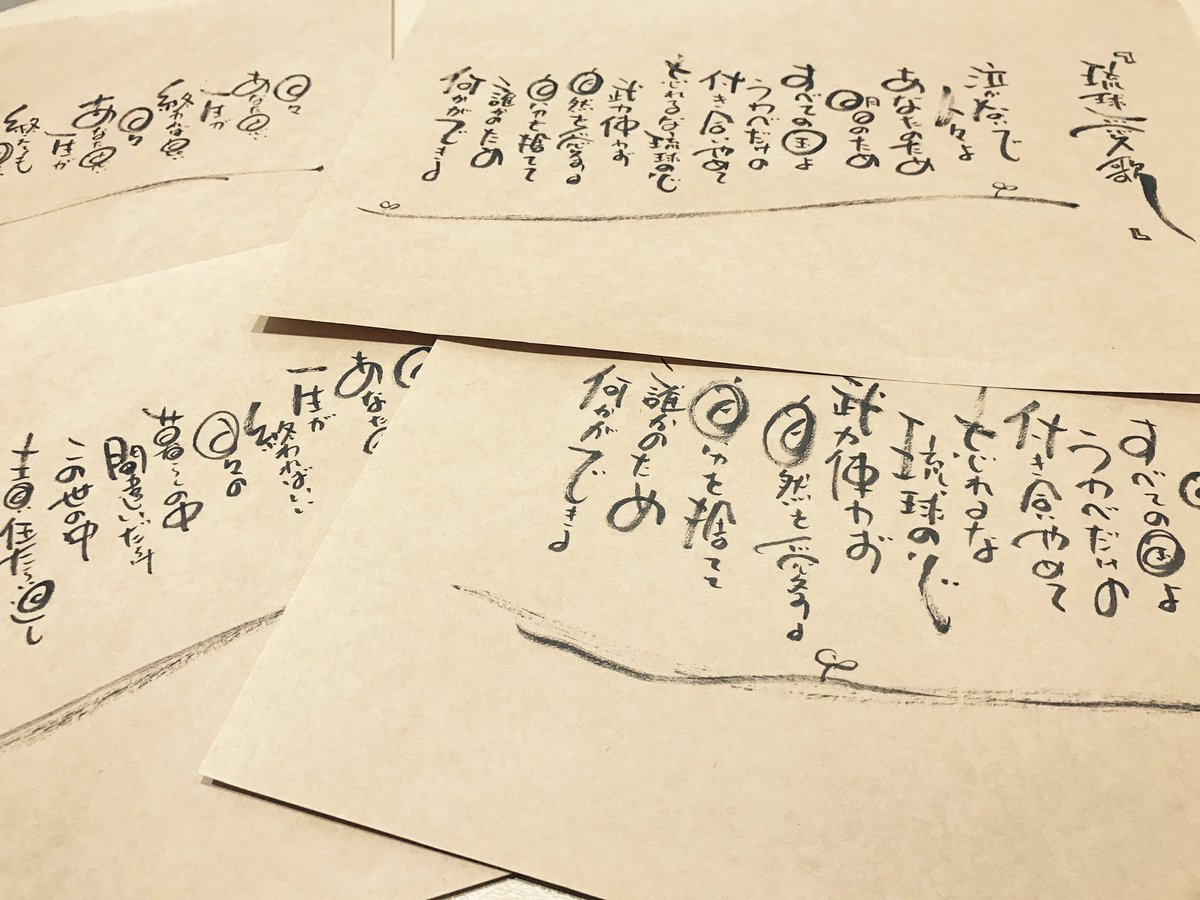 『琉球愛歌』
泣かないで
人々よ
あなたのため
明日のため
すべての国よ
うわべだけの
付き合いやめて
忘れるな琉球の心
武力使わず
自然を愛する
自分を捨てて
誰かのため
何かができる
日々
一生が
日々
一生が
すべての国よ
うわべだけの
付き合いやめて
忘れるな
琉球の心
武力使わず
自然を愛する
自分を捨てて
誰かのため
何かができる
あなた
一生が
終わればいい
日々の
暮らしの中
間違いだらけ
この世の中